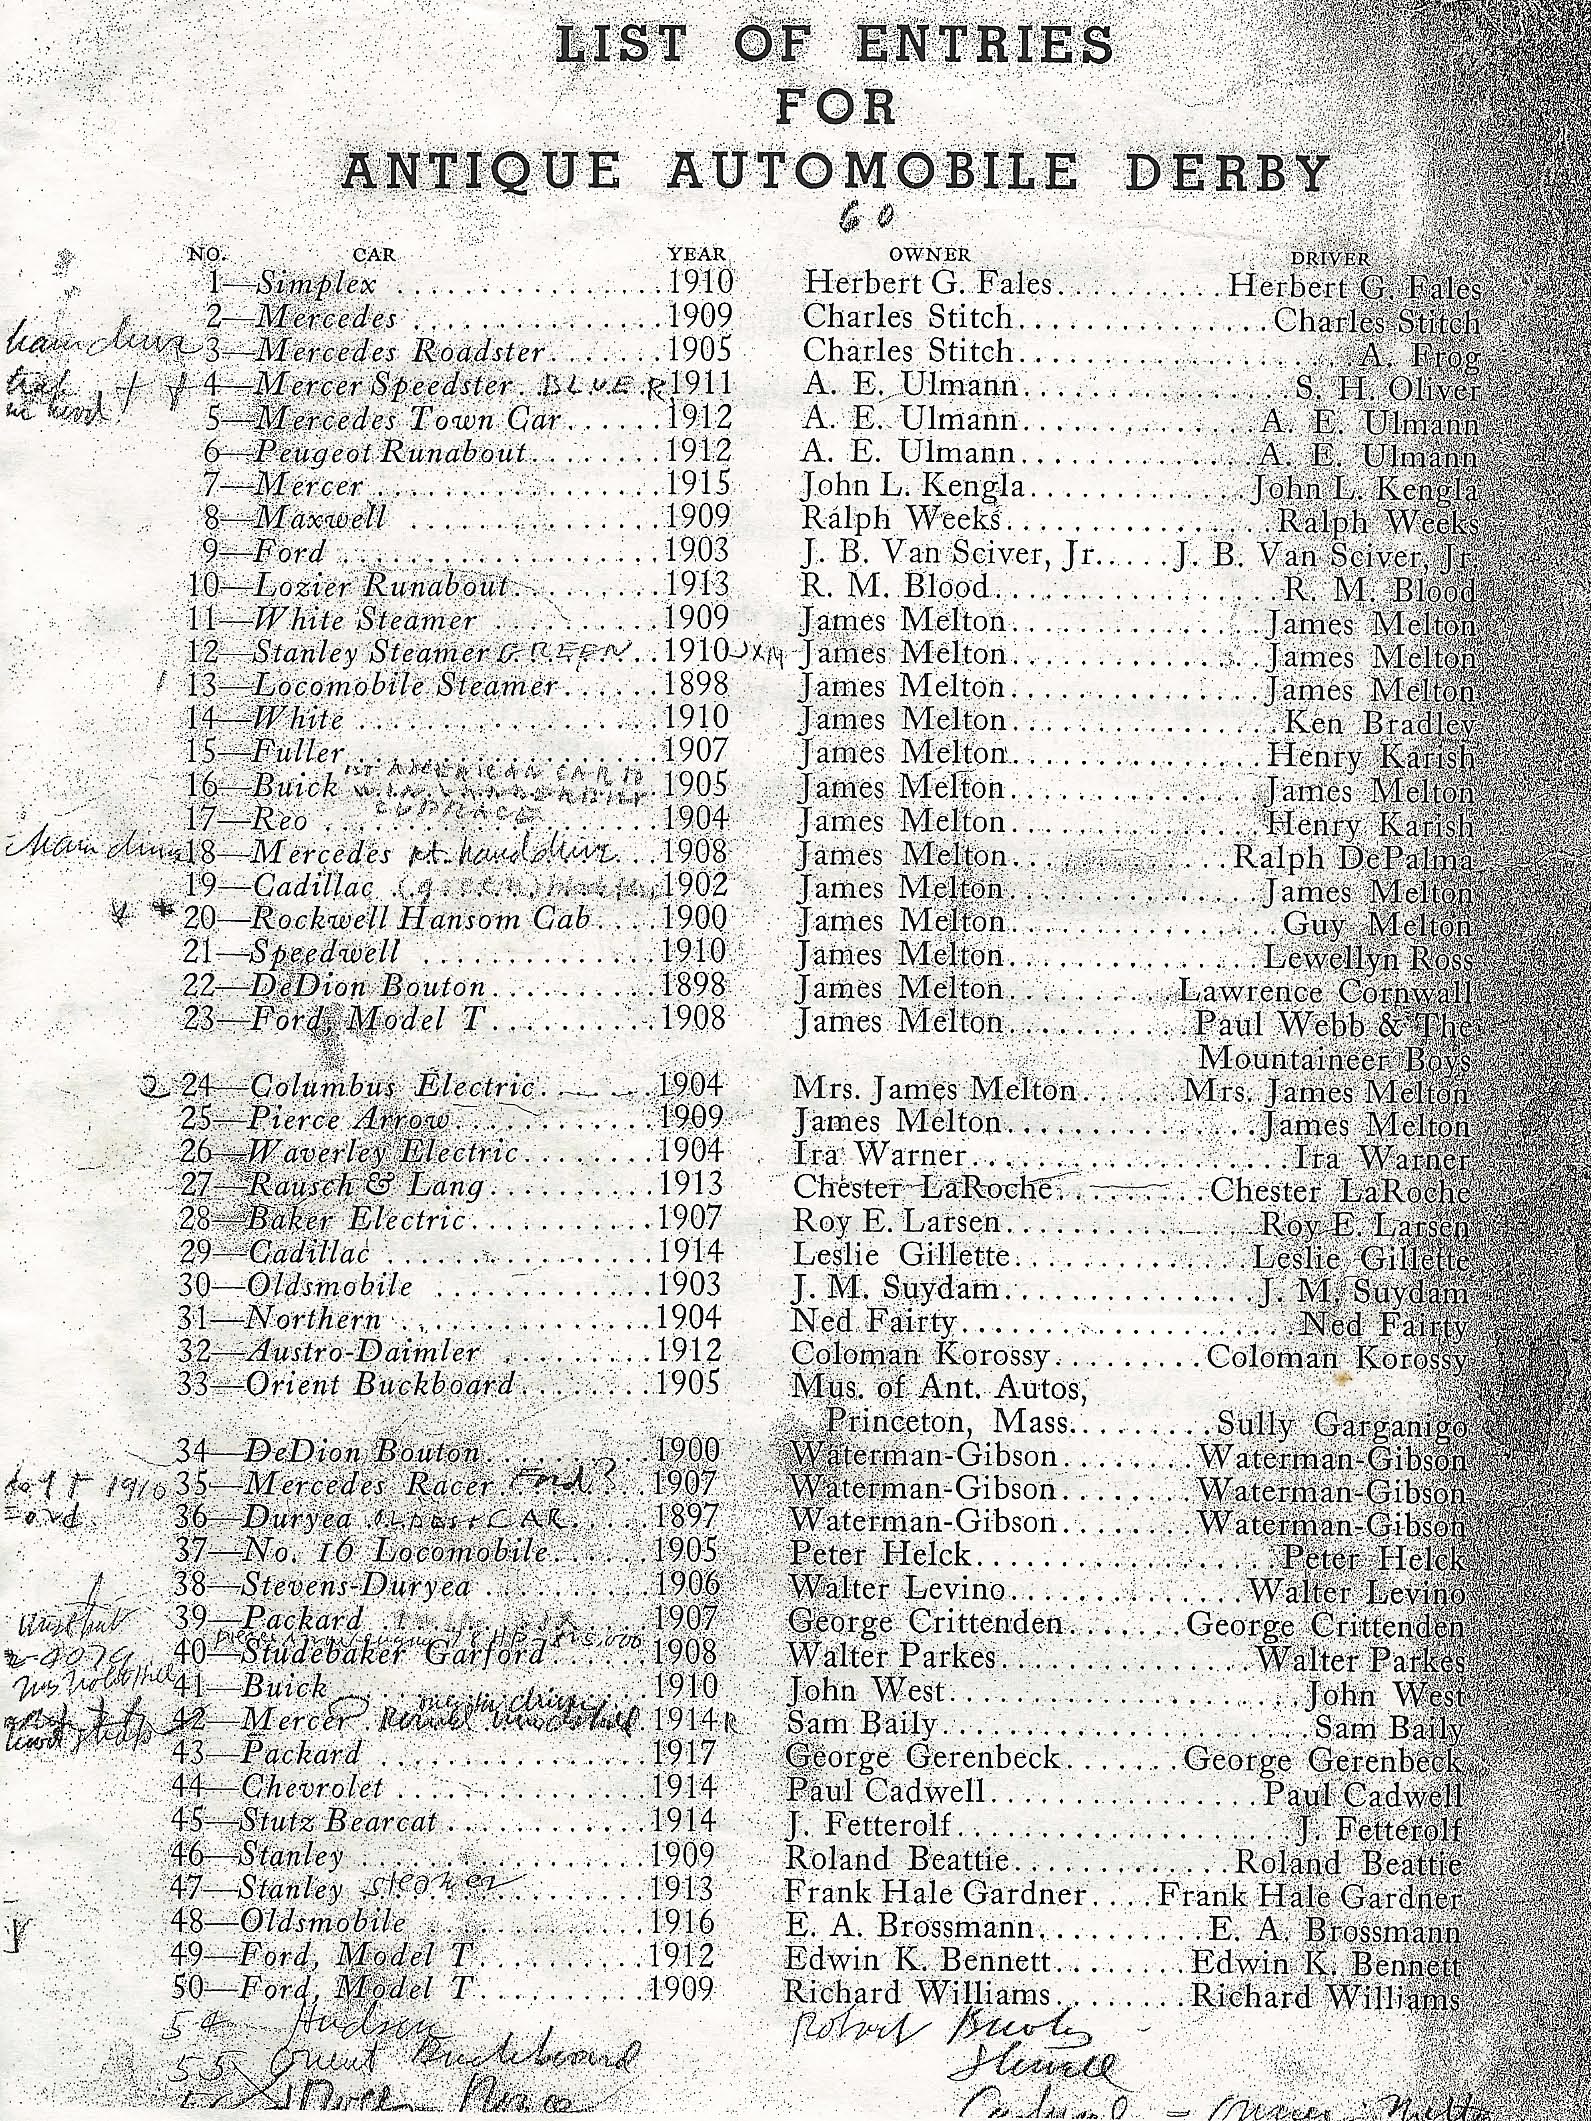 LIST OF ENTRIES
FOR
ANTIQUE AUTOMOBILE DERBY
60
NO. CAR YEAR OWNER DRIVER
1—Simplex ................1910 Herbert G. Fales..........Herbert G. Fales
2—Mercedes ...............1909 Charles Stitch...............Charles Stitch
3—Mercedes Roadster.......1905 Charles Stitch....................A. Frog
4—Mercer Speedster. BLUE R 1911 A. E. Ulmann................S. H. Oliver
5—Mercedes Town Car......1912 A. E. Ulmann..............A. E. Ulmann
6—Peugeot Runabout........1912 A. E. Ulmann..............A. E. Ulmann
7—Mercer.................1915 John L. Kengla.............John L. Kengla
8—Maxwell ...............1909 Ralph Weeks................Ralph Weeks
9—Ford ..................1903 J. B. Van Sciver, Jr.....J. B. Van Sciver, Jr.
10—Lozier Runabout.........1913 R. M. Blood.................R. M. Blood
11—White Steamer ..........1909 James Melton...............James Melton
12—Stanley Steamer GREEN ..1910 James Melton...............James Melton
13—Locomobile Steamer......1898 James Melton...............James Melton
14—White .................1910 James Melton................Ken Bradley
15—Fuller..................1907 James Melton...............Henry Karish
16—Buick 1905 James Melton...............James Melton
17—Reo ...................1904 James Melton...............Henry Karish
18—Mercedes rt. hand drive...1908 James Melton.............Ralph DePalma
19—Cadillac 1902 James Melton...............James Melton
20—Rockwell Hansom Cab....1900 James Melton................Guy Melton
21—Speedwell ..............1910 James Melton...............Lewellyn Ross
22—DeDion Bouton..........1898 James Melton..........Lawrence Cornwall
23—Ford, Model T..........1908 James Melton...........Paul Webb & The
Mountaineer Boys
24—Columbus Electric.......1904 Mrs. James Melton......Mrs. James Melton
25—Pierce Arrow............1909 James Melton...............James Melton
26—Waverley Electric........1904 Ira Warner...................Ira Warner
27—Rausch & Lang..........1913 Chester LaRoche.........Chester LaRoche
28—Baker Electric...........1907 Roy E. Larsen.............Roy E. Larsen
29—Cadillac ...............1914 Leslie Gillette..............Leslie Gillette
30—Oldsmobile .............1903 J. M. Suydam..............J. M. Suydam
31—Northern ..............1904 Ned Fairty...................Ned Fairty
32—Austro-Daimler .........1912 Coloman Korossy.........Coloman Korossy
33—Orient Buckboard........1905 Mus. of Ant. Autos,
Princeton, Mass.........Sully Garganigo
34—DeDion Bouton..........1900 Waterman-Gibson........Waterman-Gibson
35—Mercedes Racer. Ford?...1907 Waterman-Gibson........Waterman-Gibson
36—Duryea OLDEST CAR.....1897 Waterman-Gibson........Waterman-Gibson
37—No. 16 Locomobile.......1905 Peter Helck..................Peter Helck
38—Stevens-Duryea ..........1906 Walter Levino..............Walter Levino
39—Packard 1907 George Crittenden.......George Crittenden
40—Studebaker Garford......1908 Walter Parkes..............Walter Parkes
41—Buick .................1910 John West....................John West
42—Mercer 1914 R Sam Baily....................Sam Baily
43—Packard ................1917 George Gerenbeck.......George Gerenbeck
44—Chevrolet ..............1914 Paul Cadwell...............Paul Cadwell
45—Stutz Bearcat............1914 J. Fetterolf..................J. Fetterolf
46—Stanley ................1909 Roland Beattie............Roland Beattie
47—Stanley steamer.........1913 Frank Hale Gardner....Frank Hale Gardner
48—Oldsmobile .............1916 E. A. Brossmann..........E. A. Brossmann
49—Ford, Model T..........1912 Edwin K. Bennett........Edwin K. Bennett
50—Ford, Model T..........1909 Richard Williams........Richard Williams
54 Hudson Robert
55 Orient Buckboard